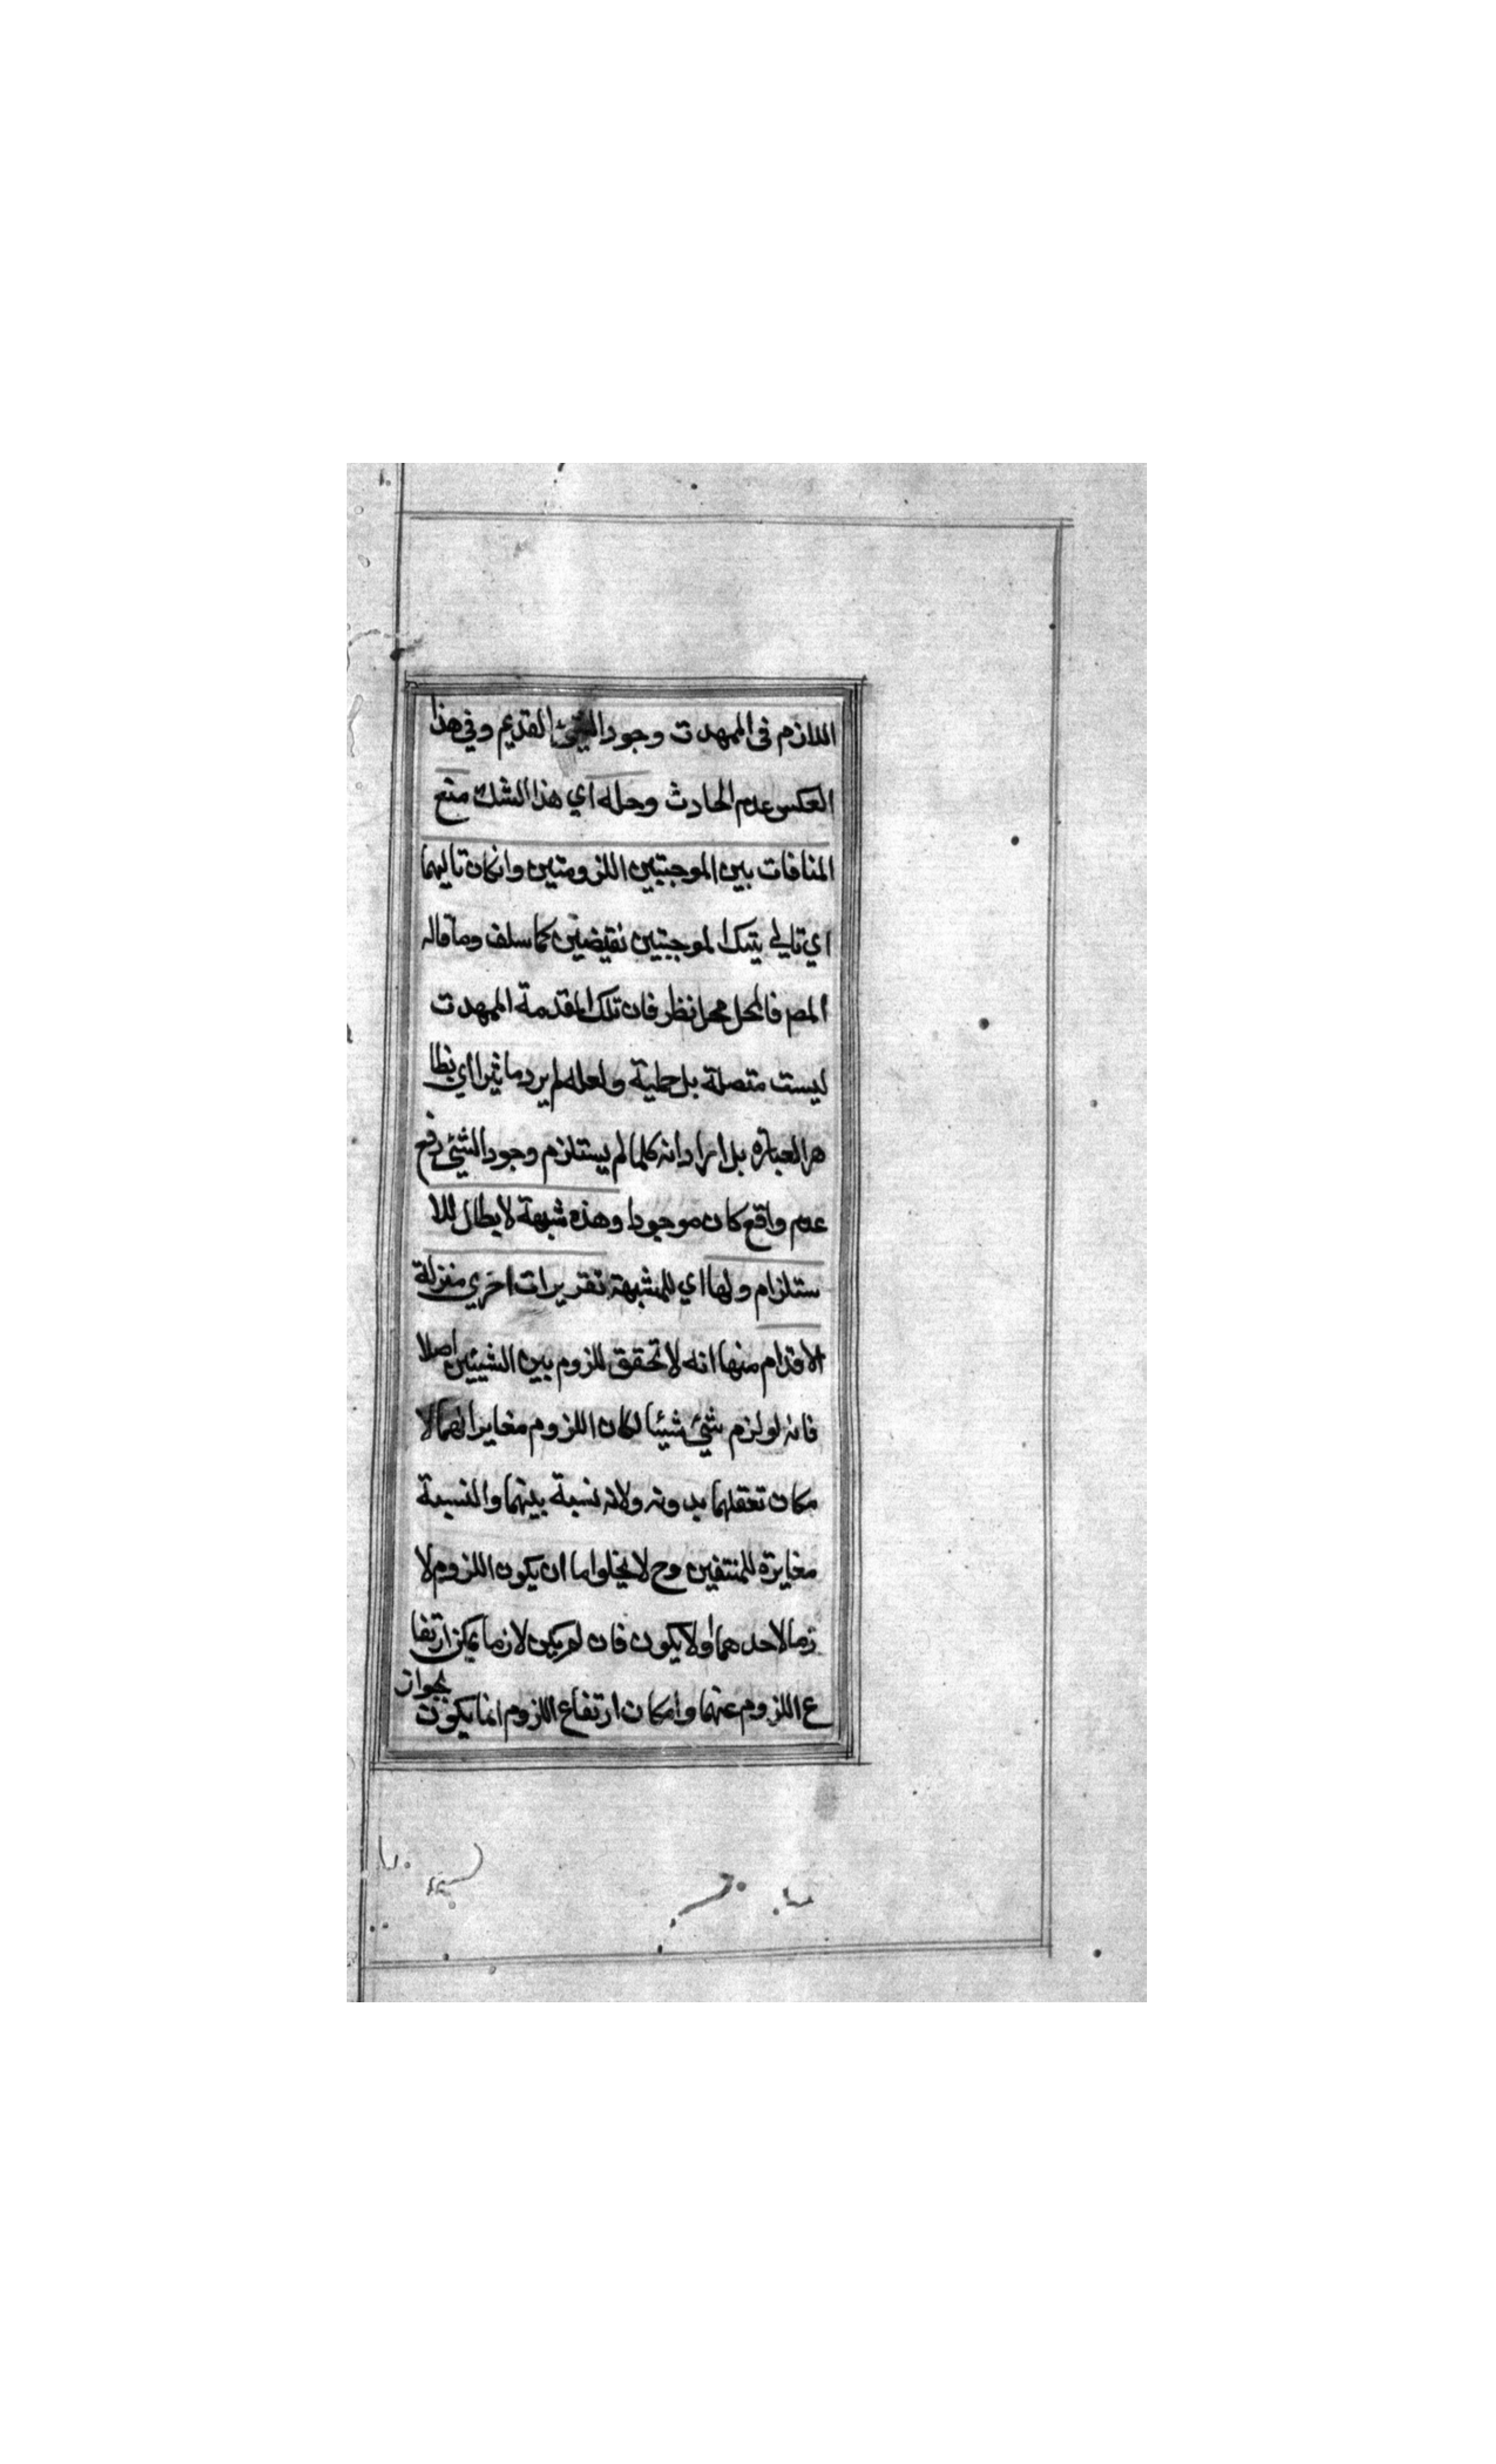 اللازم فى الممهدت وجود الشئ القديم وفي هذا
العكس عدم الحادث وحله اي هذا الشك منع
المنافات بين الموجبتين اللزوميتين وانكان تاليهما
اي تالي يتنك الموجبتين نقيضين كما سلف وما قاله
المص فالحل محل نظر فان تلك المقدمة الممهدت
ليست متصلة بل حملية ولعله لم يرد ما يترااي بظا
هر العبارة بل اراد انه كلما لم يستلزم وجود الشئ رفع
عدم واقع كان موجودا وهذه شبهة لابطال للا
ستلزام ولها اي للشبهة تقريرات اخري منزلة
الاقدام منها انه لا تحقق للزوم بين الشيئين اصلا
فانه لو لزم شئ شيئا لكان اللزوم مغايرا لهما لا
مكان تعقلهما بدونه ولانه نسبة بينهما والنسبة
مغايرة للمنتفين وح لا يخلوا ما ان يكون اللزوم لا
زما لاحدهما اولا يكون فان لم يكن لازما يمكن ارتفا
ع اللزوم عنهما وامكان ارتفاع اللزوم انما يكون
بجواز